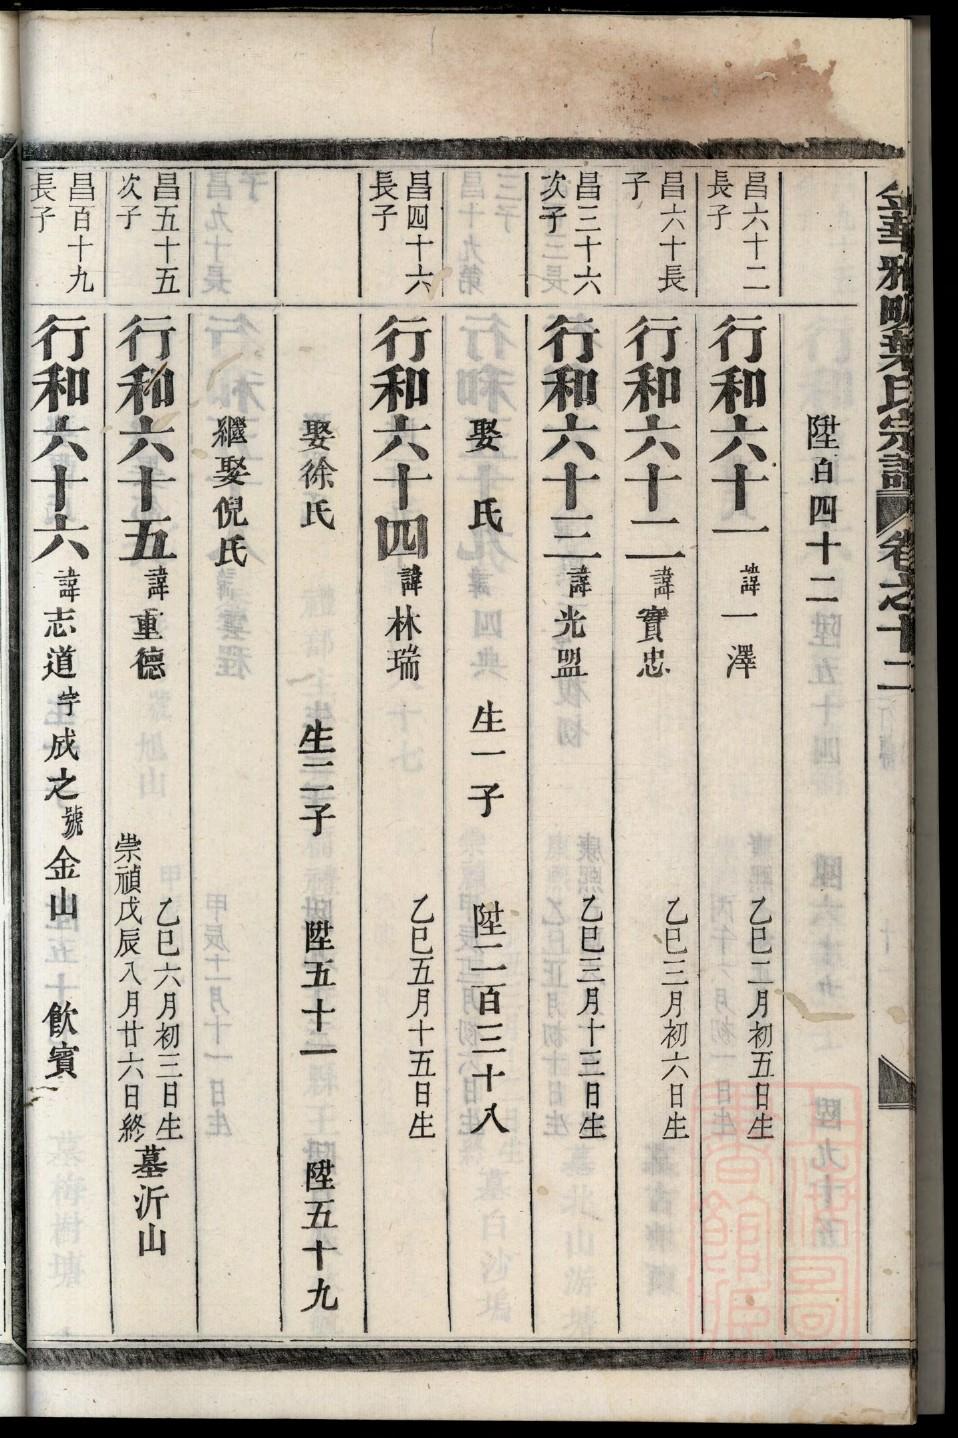 金華雅畈葉氏宗譜 卷之十二
陞百四十二
昌六十二
長子
行和六十一 諱一澤 乙巳二月初五日生
昌六十長
子
行和六十二 諱實忠 乙巳三月初六日生
昌三十六
次子
行和六十三 諱光盟 乙巳三月十三日生
娶 氏 生一子 陞二百三十八
昌四十六
長子
行和六十四 諱林瑞 乙巳五月十五日生
娶徐氏 生二子 陞五十一 陞五十九
繼娶倪氏
昌五十五
次子
行和六十五 諱重德 乙巳六月初三日生
崇禎戊辰八月廿六日終 墓沂山
昌百十九
長子
行和六十六 諱志道字成之號金山 飲賓